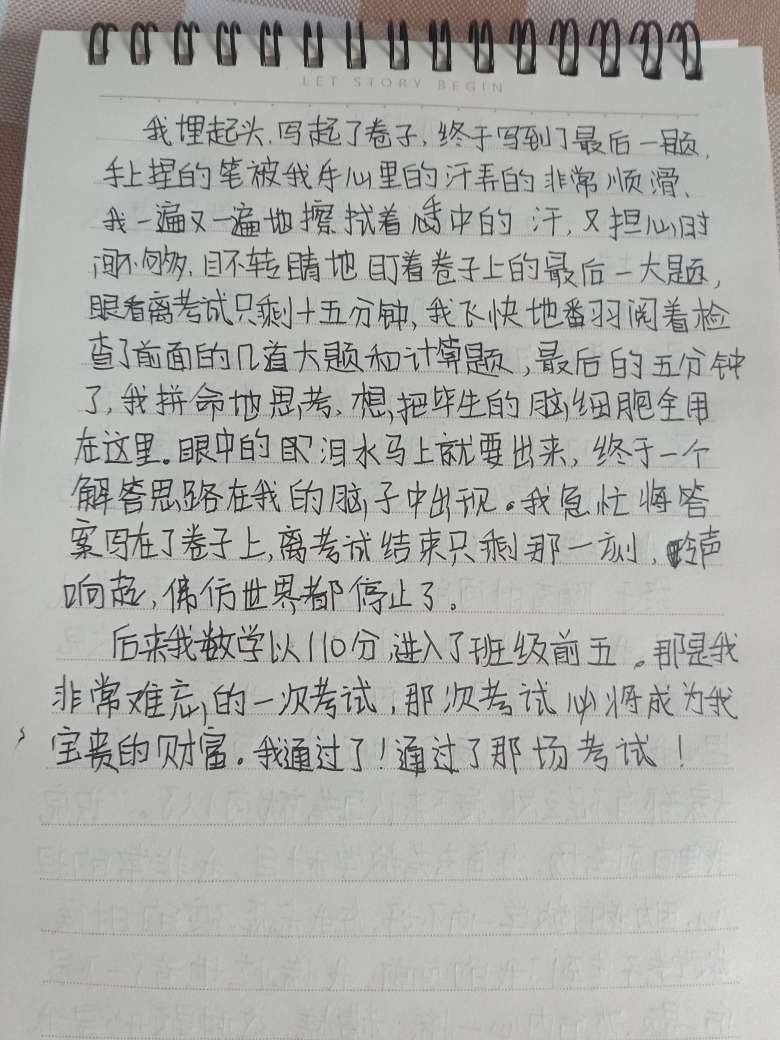 LET STORY BEGIN
我埋起头,写起了卷子,终于写到了最后一题,
手上捏的笔被我手心里的汗弄的非常顺滑、
我一遍又一遍地擦拭着手中的汗,又担心时
间不够多,目不转睛地盯着卷子上的最后一大题,
眼看离考试只剩十五分钟,我飞快地翻阅着检
查了前面的几道大题和计算题,最后的五分钟
了,我拼命地思考,想把毕生的脑细胞全用
在这里。眼中的泪水马上就要出来,终于一个
解答思路在我的脑子中出现。我急忙将答
案写在了卷子上,离考试结束只剩那一刻,铃声
响起,佛仿世界都停止了。
后来我数学以110分,进入了班级前五。那是我
非常难忘的一次考试,那次考试必将成为我
宝贵的财富。我通过了!通过了那场考试!